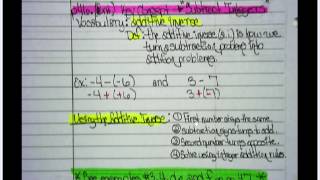 Key Concept * Subtract Integers
Vocabulary: additive inverse
Def: the additive inverse (a.i.) is how we
turn subtraction problems into
addition problems.
Ex: -4 - (-6) and 3 - 7
-4 + (+6) 3 + (-7)
Using the Additive Inverse: ① First number stays the same.
② subtraction sign turns to add.
③ Second number turns opposite.
④ Solve using integer addition rules.
* See examples #3, 4,